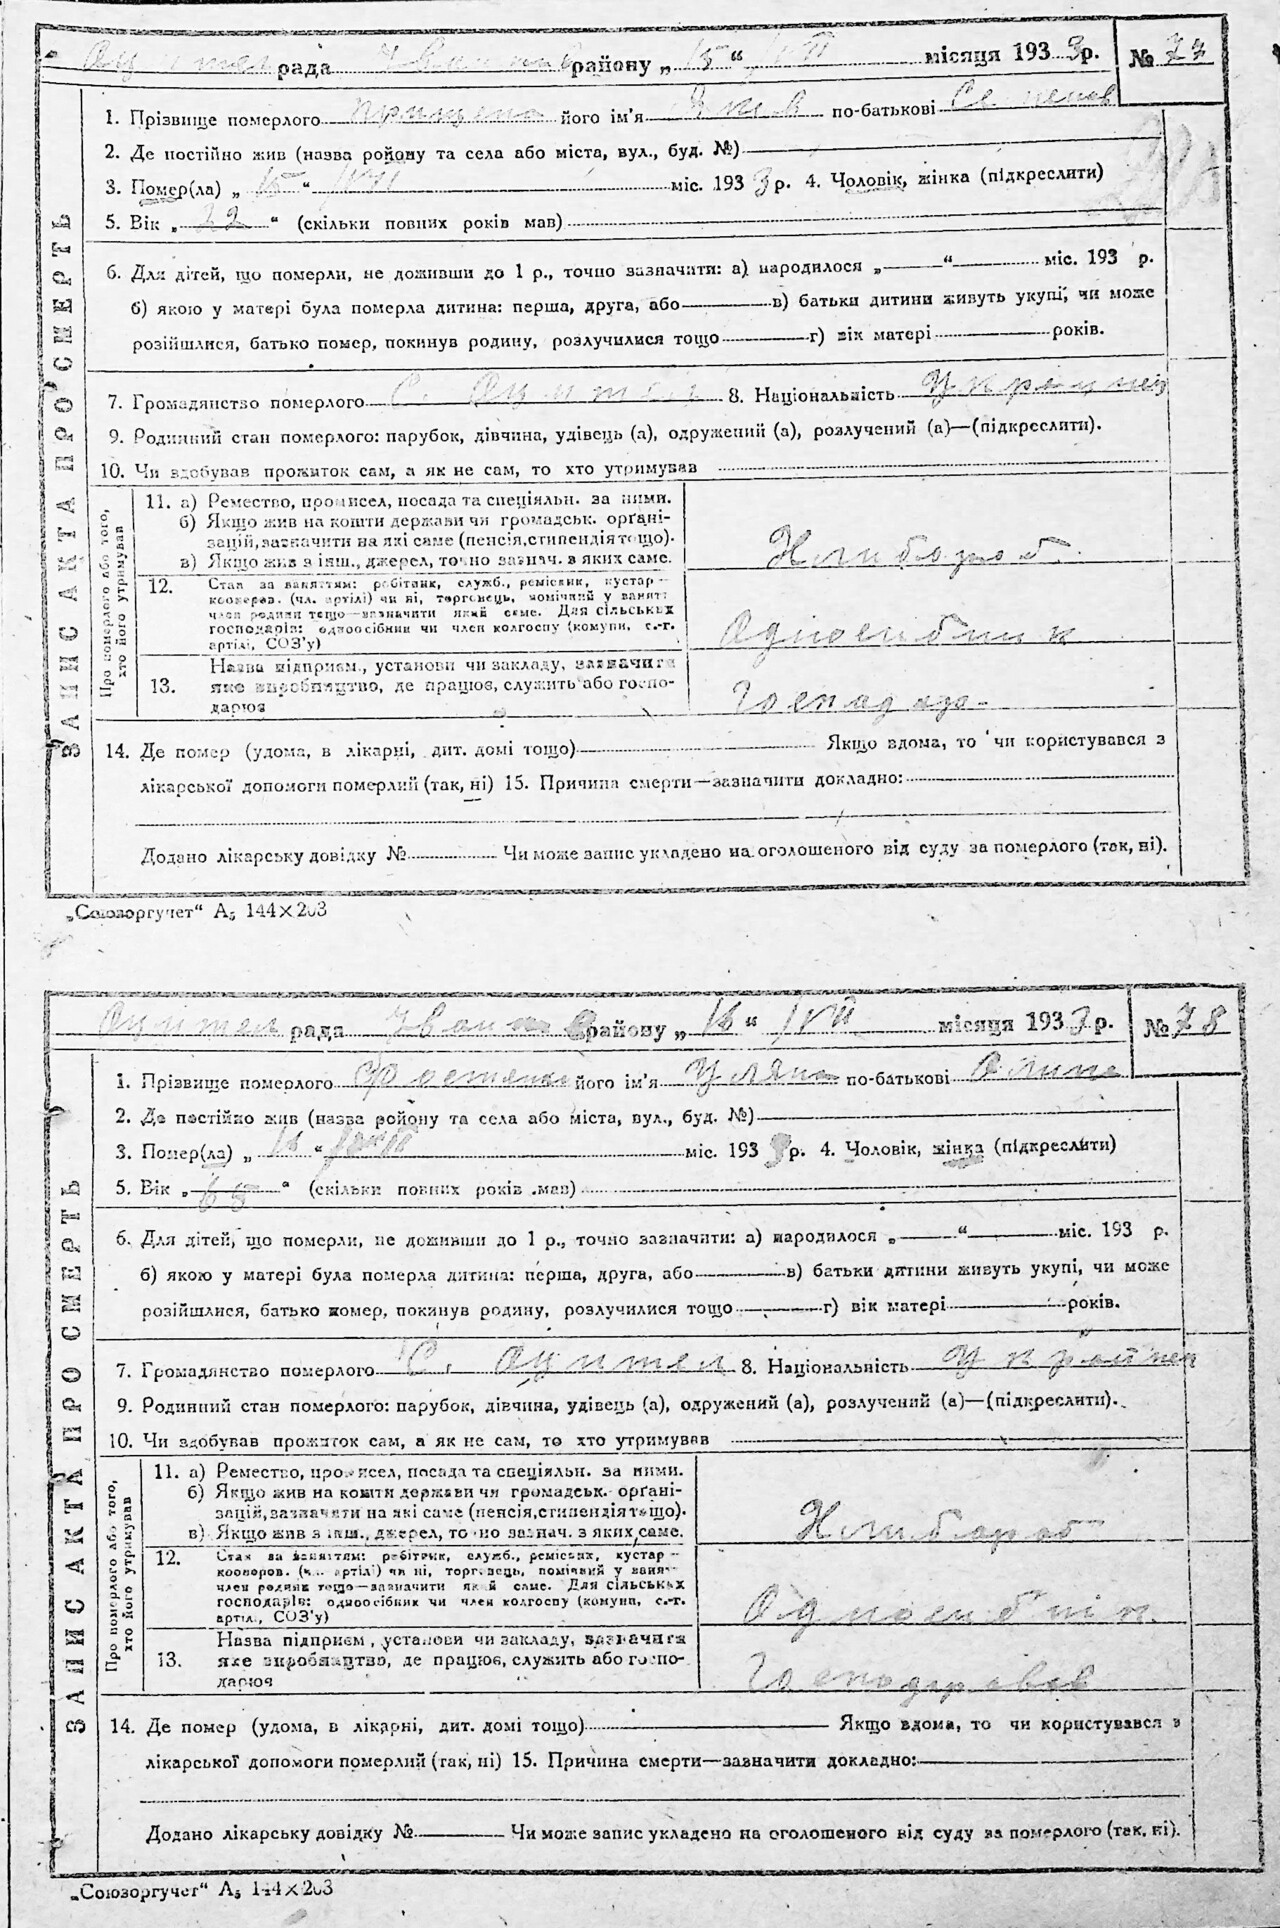 рада району „ 15 “ місяця 1933 р. №
1. Прізвище померлого його ім'я Яків по-батькові Семенов
2. Де постійно жив (назва ройону та села або міста, вул., буд. №)
3. Помер(ла) „ 15 “ міс. 1933 р. 4. Чоловік, жінка (підкреслити)
5. Вік „ 22 “ (скільки повних років мав)
6. Для дітей, що померли, не доживши до 1 р., точно зазначити: а) народилося „ “ міс. 193 р.
б) якою у матері була померла дитина: перша, друга, або в) батьки дитини живуть укупі, чи може
розійшлися, батько помер, покинув родину, розлучилися тощо г) вік матері років.
7. Громадянство померлого С. 8. Національність
9. Родинний стан померлого: парубок, дівчина, удівець (а), одружений (а), розлучений (а)—(підкреслити).
10. Чи здобував прожиток сам, а як не сам, то хто утримував
ЗАПИС АКТА ПРО СМЕРТЬ
Про померлого або того,
хто його утримував
11. а) Ремество, промисел, посада та спеціяльн. за ними.
б) Якщо жив на кошти держави чи громадськ. орґані-
зацій, зазначити на які саме (пенсія, стипендія тощо).
в) Якщо жив з інш., джерел, точно зазнач. з яких саме.
Хлибороб
12. Стан за заняттям: робітник, служб., реміснik, кустар –
кооперов. (чл. артілі) чи ні, торговець, помічний у занятт
член родини тощо—зазначити який саме. Для сільських
господарів: одноосібник чи член колгоспу (комуни, с.-г.
артілі, СОЗ'у)
Односибник
13. Назва підприєм., установи чи закладу, зазначити
яке виробництво, де працює, служить або госпо-
дарює
14. Де помер (удома, в лікарні, дит. домі тощо) Якщо вдома, то чи користувався з
лікарської допомоги померлий (так, ні) 15. Причина смерти—зазначити докладно:
Додано лікарську довідку № Чи може запис укладено на оголошеного від суду за померлого (так, ні).
„Союзоргучет“ А5 144×203
рада району „ 16 “ місяця 1933 р. № 78
1. Прізвище померлого його ім'я Уляна по-батькові
2. Де постійно жив (назва ройону та села або міста, вул., буд. №)
3. Помер(ла) „ 16 “ міс. 1933 р. 4. Чоловік, жінка (підкреслити)
5. Вік „ 65 “ (скільки повних років мав)
6. Для дітей, що померли, не доживши до 1 р., точно зазначити: а) народилося „ “ міс. 193 р.
б) якою у матері була померла дитина: перша, друга, або в) батьки дитини живуть укупі, чи може
розійшлися, батько помер, покинув родину, розлучилися тощо г) вік матері років.
7. Громадянство померлого С. 8. Національність
9. Родинний стан померлого: парубок, дівчина, удівець (а), одружений (а), розлучений (а)—(підкреслити).
10. Чи здобував прожиток сам, а як не сам, то хто утримував
ЗАПИС АКТА ПРО СМЕРТЬ
Про померлого або того,
хто його утримував
11. а) Ремество, промисел, посада та спеціяльн. за ними.
б) Якщо жив на кошти держави чи громадськ. орґані-
зацій, зазначити на які саме (пенсія, стипендія тощо).
в) Якщо жив з інш., джерел, точно зазнач. з яких саме.
Хлибороб
12. Стан за заняттям: робітник, служб., ремісник, кустар –
кооперов. (чл. артілі) чи ні, торговець, помічний у занятт
член родини тощо—зазначити який саме. Для сільських
господарів: одноосібник чи член колгоспу (комуни, с.-г.
артілі, СОЗ'у)
Односибнік
13. Назва підприєм., установи чи закладу, зазначити
яке виробництво, де працює, служить або госпо-
дарює
14. Де помер (удома, в лікарні, дит. домі тощо) Якщо вдома, то чи користувався з
лікарської допомоги померлий (так, ні) 15. Причина смерти—зазначити докладно:
Додано лікарську довідку № Чи може запис укладено на оголошеного від суду за померлого (так, ні).
„Союзоргучет“ А5 144×203